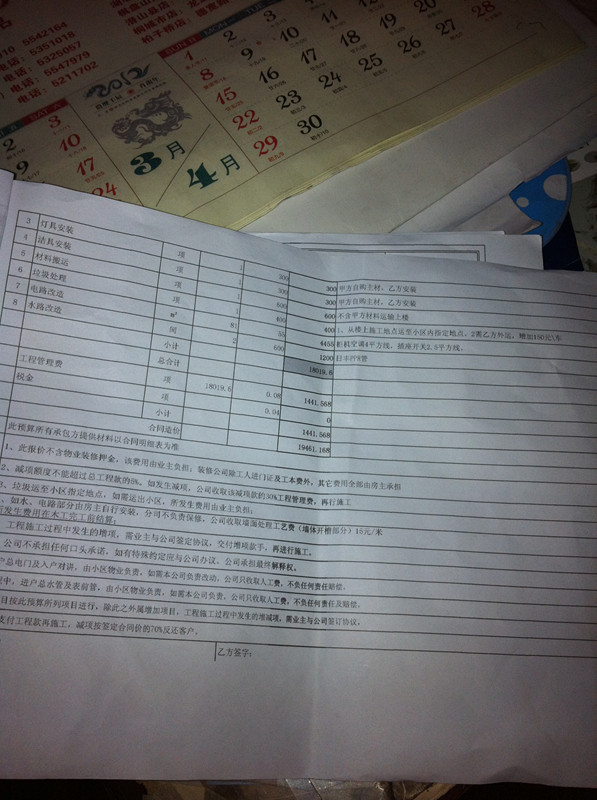 5542164
电话：5351018
电话：5325057
电话：5547979
电话：5211702
2012
3月
4月
1 2 3 4 5 6 7
8 9 10 11 12 13 14
15 16 17 18 19 20 21
22 23 24 25 26 27 28
29 30
2 3
9 10
17
24
3 灯具安装 项 1 300 300 甲方自购主材，乙方安装
4 洁具安装 项 1 300 300 甲方自购主材，乙方安装
5 材料搬运 项 1 600 600 不含甲方材料运输上楼
6 垃圾处理 项 1 400 400 1、从楼上施工地点运至小区内指定地点，2需乙方外运，增加100元1车
7 电路改造 m² 81 55 4455 柜机空调4平方线，插座开关2.5平方线。
8 水路改造 间 2 600 1200 日丰PPR管
小计 18019.6
总合计
工程管理费 项 18019.6 0.08 1441.568
税金 项 0.04 0
小计 1441.568
合同造价 19461.168
此预算所有承包方提供材料以合同明细表为准
1、此报价不含物业装修押金，该费用由业主负担；装修公司除工人进门证及工本费外，其它费用全部由房主承担
2、减项额度不能超过总工程款的5%，如发生减项，公司收取该减项款的30%工程管理费，再行施工
、垃圾运至小区指定地点，如需运出小区，所发生费用由业主负担；
、如水、电路部分由房主自行安装，分司不负责保修，公司收取墙面处理工艺费（墙体开槽部分）15元/米
所发生费用在木工完工前结算；
工程施工过程中发生的增项，需业主与公司签定协议，交付增项款手，再进行施工。
公司不承担任何口头承诺，如有特殊约定应与公司办议，公司承担最终解释权。
户总电门及入户对讲，由小区物业负责，如需本公司负责改动，公司只收取人工费，不负任何责任赔偿。
程中，进户总水管及表前管，由小区物业负责，如需本公司负责，公司只收取人工费，不负任何责任及赔偿。
目按此预算所列项目进行，除此之外属增加项目，工程施工过程中发生的增减项，需业主与公司签订协议，
支付工程款再施工，减项按签定合同价的70%反还客户。
乙方签字：